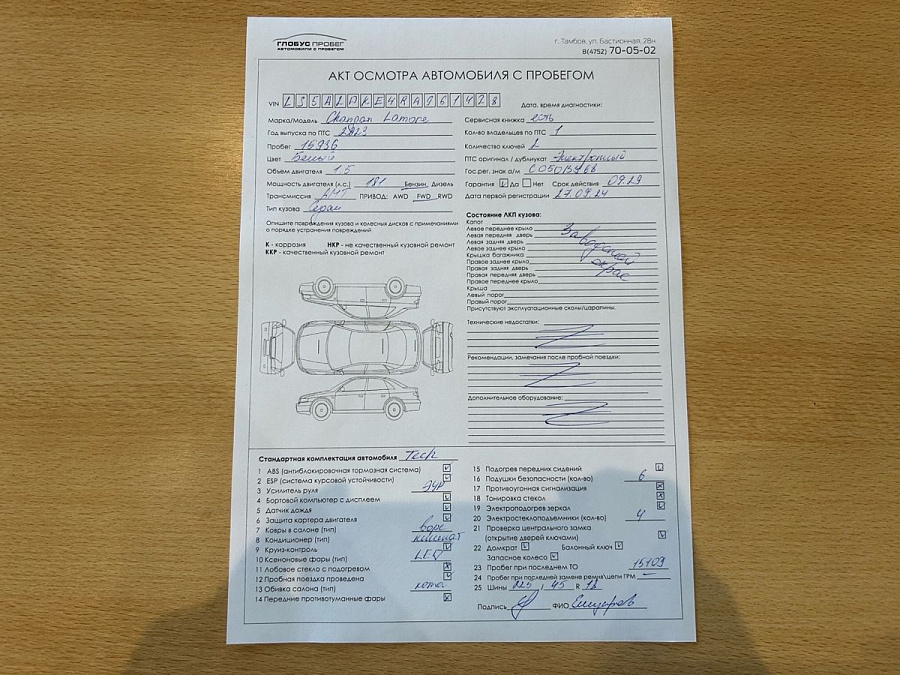 ГЛОБУС ПРОБЕГ
АВТОМОБИЛИ С ПРОБЕГОМ
г. Тамбов, ул. Бастионная, 28н
8(4752) 70-05-02
АКТ ОСМОТРА АВТОМОБИЛЯ С ПРОБЕГОМ
VIN
Марка/Модель Changan Lamore
Год выпуска по ПТС 2023
Пробег 15936
Цвет Белый
Объем двигателя 1.5
Мощность двигателя (л.с.) 181 Бензин, Дизель
Трансмиссия АМТ ПРИВОД: AWD FWD RWD
Тип кузова Седан
Опишите повреждения кузова и колесных дисков с примечаниями
о порядке устранения повреждений
К - коррозия НКР - не качественный кузовной ремонт
ККР - качественный кузовной ремонт
Дата, время диагностики:
Сервисная книжка есть
Кол-во владельцев по ПТС 1
Количество ключей 2
ПТС оригинал / дубликат Электронный
Гос.рег. знак а/м
Гарантия Да Нет Срок действия 09.29
Дата первой регистрации 27.09.24
Состояние ЛКП кузова:
Капот
Левое переднее крыло
Левая передняя дверь
Левая задняя дверь
Левое заднее крыло
Крышка багажника
Правое заднее крыло
Правая задняя дверь
Правая передняя дверь
Правое переднее крыло
Крыша
Левый порог
Правый порог
Заводской
окрас
Присутствуют эксплуатационные сколы/царапины.
Технические недостатки:
Рекомендации, замечания после пробной поездки:
Дополнительное оборудование:
Стандартная комплектация автомобиля Tech
1 ABS (антиблокировочная тормозная система)
2 ESP (система курсовой устойчивости)
3 Усилитель руля ЭУР
4 Бортовой компьютер с дисплеем
5 Датчик дождя
6 Защита картера двигателя
7 Ковры в салоне (тип) ворс
8 Кондиционер (тип) климат
9 Круиз-контроль
10 Ксеноновые фары (тип) LED
11 Лобовое стекло с подогревом
12 Пробная поездка проведена
13 Обивка салона (тип) кожа
14 Передние противотуманные фары
15 Подогрев передних сидений
16 Подушки безопасности (кол-во) 6
17 Противоугонная сигнализация
18 Тонировка стекол
19 Электроподогрев зеркал
20 Электростеклоподъемники (кол-во) 4
21 Проверка центрального замка
(открытие дверей ключами)
22 Домкрат Балонный ключ
Запасное колесо
23 Пробег при последнем ТО 15109
24 Пробег при последней замене ремня/цепи ГРМ —
25 Шины 225 / 45 R 18
Подпись ФИО